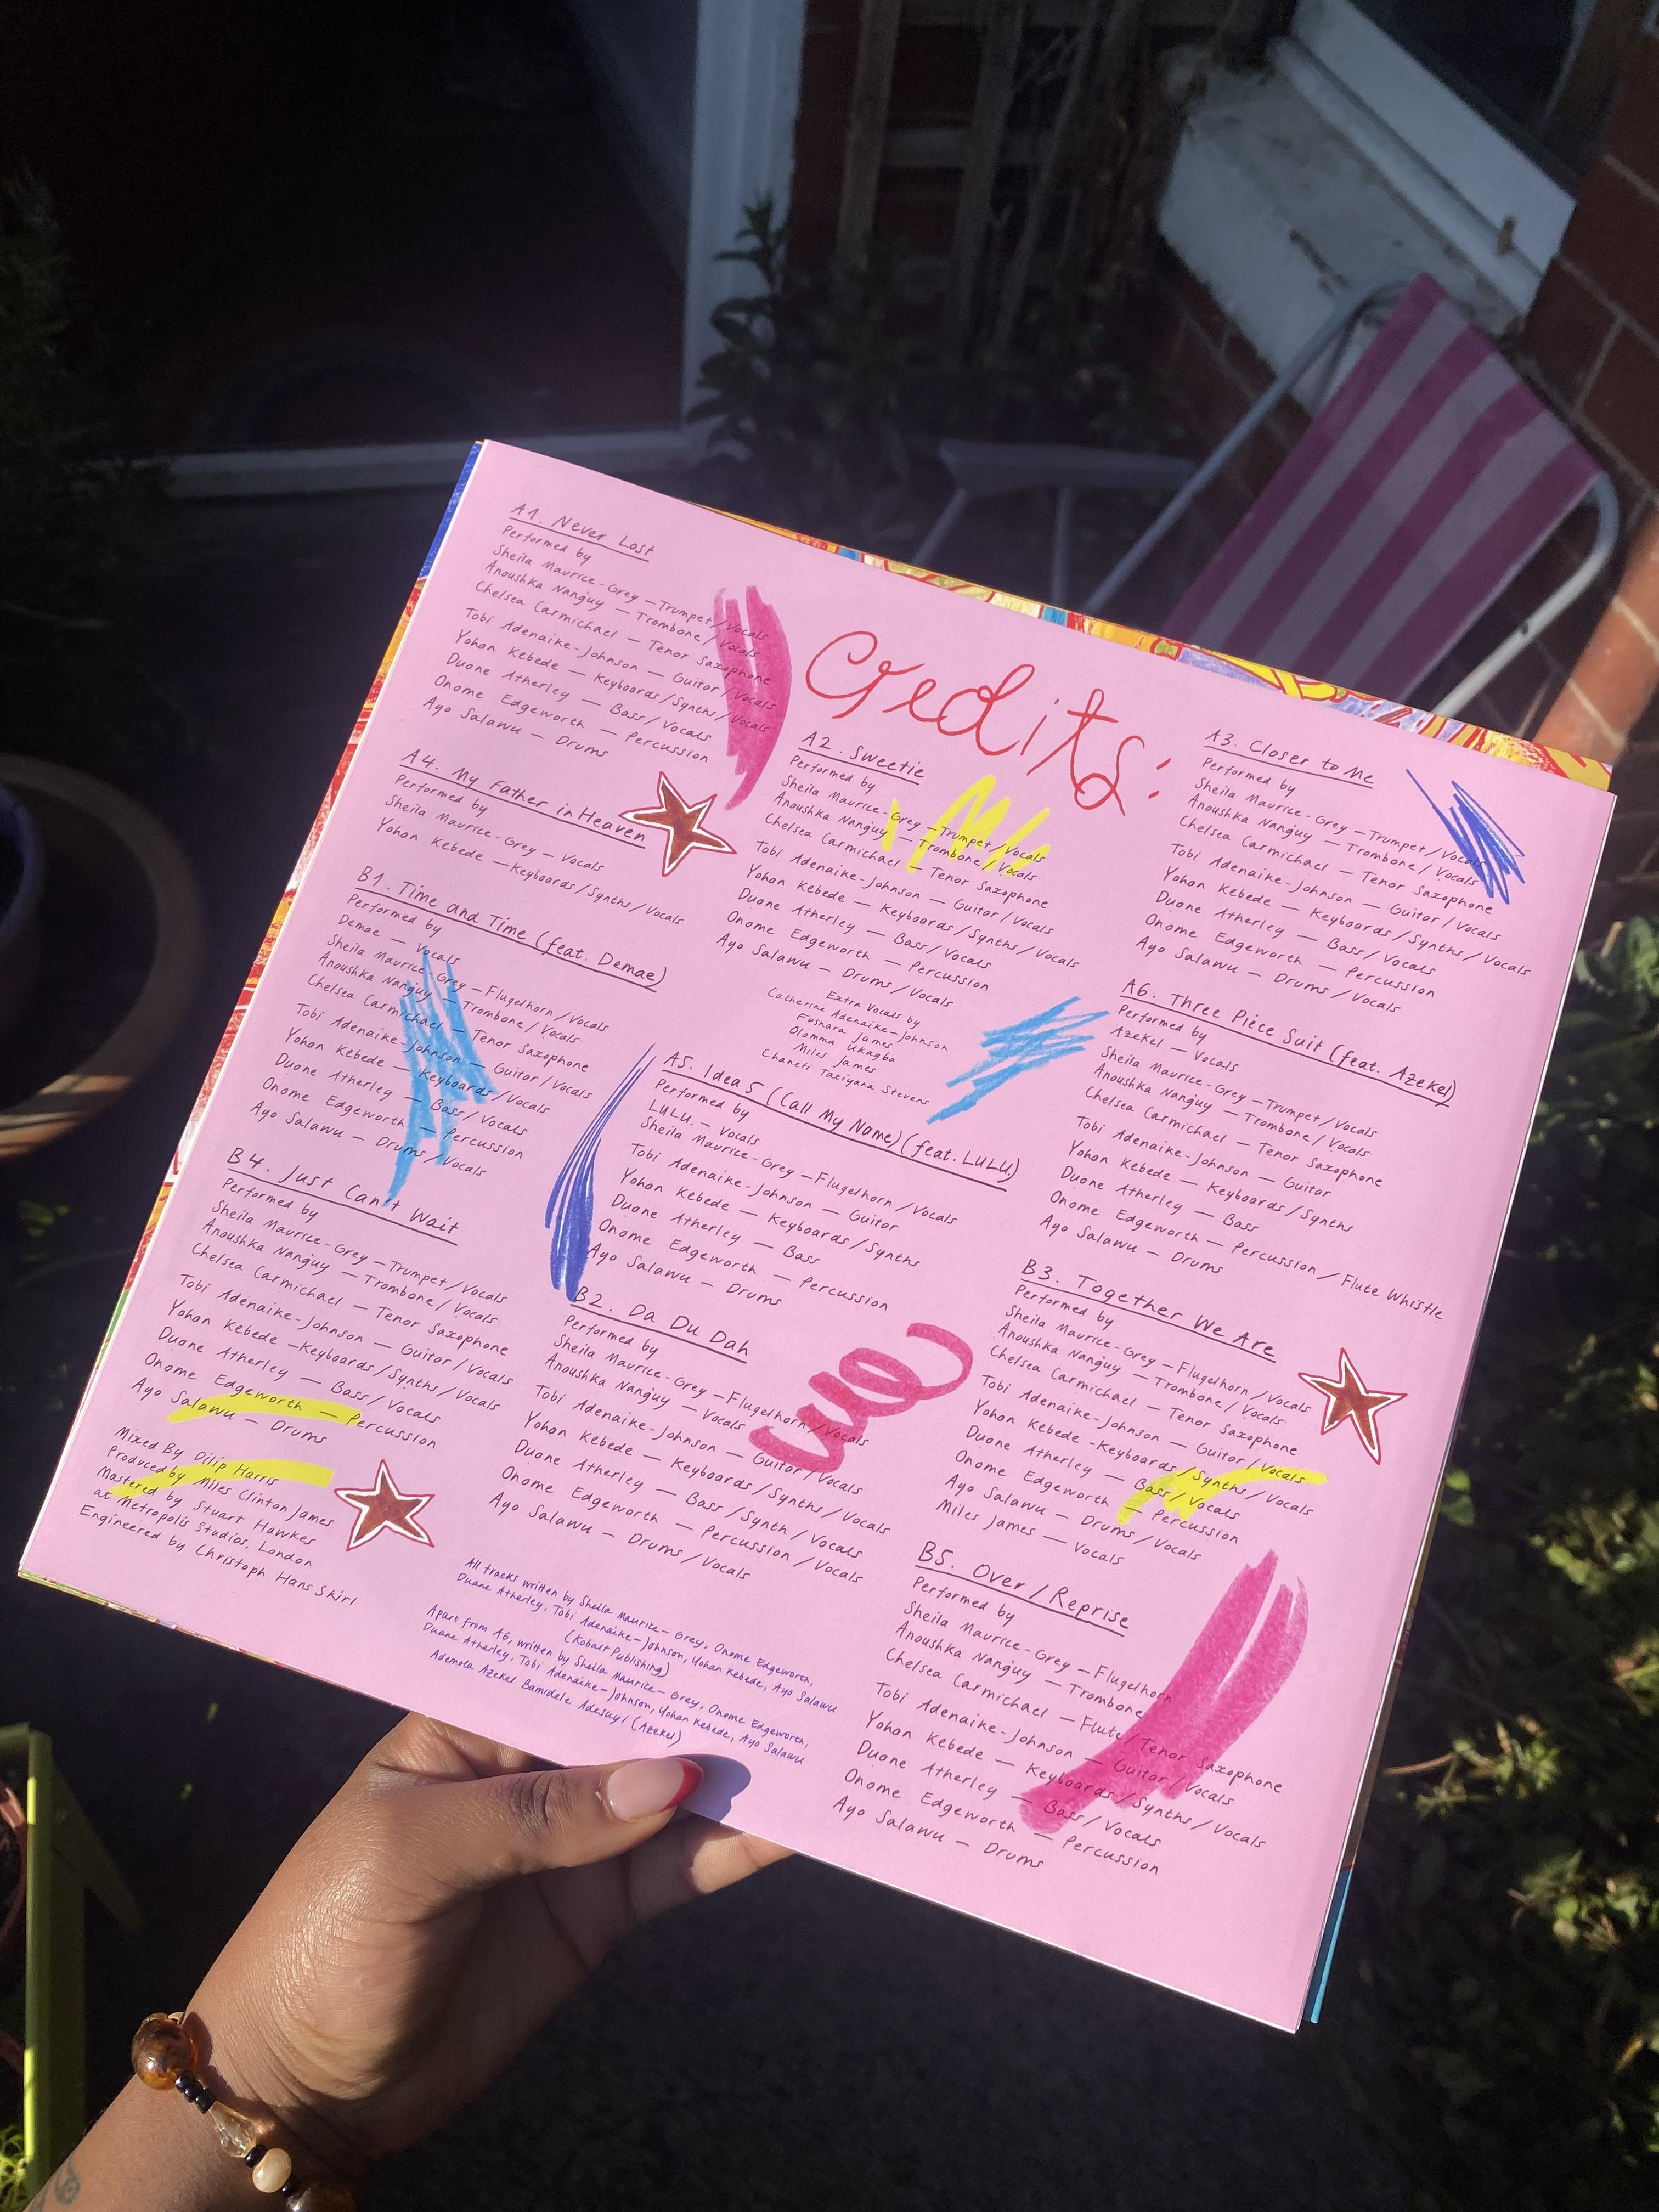 Credits:
A1. Never Lost
Performed by
Sheila Maurice-Grey — Trumpet/Vocals
Anoushka Nanguy — Trombone/Vocals
Chelsea Carmichael — Tenor Saxophone
Tobi Adenaike-Johnson — Guitar/Vocals
Yohan Kebede — Keyboards/Synths/Vocals
Duane Atherley — Bass/Vocals
Onome Edgeworth — Percussion
Ayo Salawu — Drums
A2. Sweetie
Performed by
Sheila Maurice-Grey — Trumpet/Vocals
Anoushka Nanguy — Trombone/Vocals
Chelsea Carmichael — Tenor Saxophone
Tobi Adenaike-Johnson — Guitar/Vocals
Yohan Kebede — Keyboards/Synths/Vocals
Duane Atherley — Bass/Vocals
Onome Edgeworth — Percussion
Ayo Salawu — Drums/Vocals
Extra Vocals by
Catherine Adenaike-Johnson
James
Olomma Ukagba
Miles James
Taziyana Stevens
A3. Closer to Me
Performed by
Sheila Maurice-Grey — Trumpet/Vocals
Anoushka Nanguy — Trombone/Vocals
Chelsea Carmichael — Tenor Saxophone
Tobi Adenaike-Johnson — Guitar/Vocals
Yohan Kebede — Keyboards/Synths/Vocals
Duane Atherley — Bass/Vocals
Onome Edgeworth — Percussion
Ayo Salawu — Drums/Vocals
A4. My Father in Heaven
Performed by
Sheila Maurice-Grey — Vocals
Yohan Kebede — Keyboards/Synths/Vocals
A5. Idea 5 (Call My Name) (feat. LULU.)
Performed by
LULU. — Vocals
Sheila Maurice-Grey — Flugelhorn/Vocals
Tobi Adenaike-Johnson — Guitar
Yohan Kebede — Keyboards/Synths
Duane Atherley — Bass
Onome Edgeworth — Percussion
Ayo Salawu — Drums
A6. Three Piece Suit (feat. Azekel)
Performed by
Azekel — Vocals
Sheila Maurice-Grey — Trumpet/Vocals
Anoushka Nanguy — Trombone/Vocals
Chelsea Carmichael — Tenor Saxophone
Tobi Adenaike-Johnson — Guitar
Yohan Kebede — Keyboards/Synths
Duane Atherley — Bass
Onome Edgeworth — Percussion/Flute Whistle
Ayo Salawu — Drums
B1. Time and Time (feat. Demae)
Performed by
Demae — Vocals
Sheila Maurice-Grey — Flugelhorn/Vocals
Anoushka Nanguy — Trombone/Vocals
Chelsea Carmichael — Tenor Saxophone
Tobi Adenaike-Johnson — Guitar/Vocals
Yohan Kebede — Keyboards/Vocals
Duane Atherley — Bass/Vocals
Onome Edgeworth — Percussion
Ayo Salawu — Drums/Vocals
B2. Da Du Dah
Performed by
Sheila Maurice-Grey — Flugelhorn/Vocals
Anoushka Nanguy — Vocals
Tobi Adenaike-Johnson — Guitar/Vocals
Yohan Kebede — Keyboards/Synths/Vocals
Duane Atherley — Bass/Synth/Vocals
Onome Edgeworth — Percussion/Vocals
Ayo Salawu — Drums/Vocals
B3. Together We Are
Performed by
Sheila Maurice-Grey — Flugelhorn/Vocals
Anoushka Nanguy — Trombone/Vocals
Chelsea Carmichael — Tenor Saxophone
Tobi Adenaike-Johnson — Guitar/Vocals
Yohan Kebede -Keyboards/Synths/Vocals
Duane Atherley — Bass/Vocals
Onome Edgeworth — Percussion
Ayo Salawu — Drums/Vocals
Miles James — Vocals
B4. Just Can't Wait
Performed by
Sheila Maurice-Grey — Trumpet/Vocals
Anoushka Nanguy — Trombone/Vocals
Chelsea Carmichael — Tenor Saxophone
Tobi Adenaike-Johnson — Guitar/Vocals
Yohan Kebede -Keyboards/Synths/Vocals
Duane Atherley — Bass/Vocals
Onome Edgeworth — Percussion
Ayo Salawu — Drums
B5. Over/Reprise
Performed by
Sheila Maurice-Grey — Flugelhorn
Anoushka Nanguy — Trombone
Chelsea Carmichael — Flute/Tenor Saxophone
Tobi Adenaike-Johnson — Guitar/Vocals
Yohan Kebede — Keyboards/Synths/Vocals
Duane Atherley — Bass/Vocals
Onome Edgeworth — Percussion
Ayo Salawu — Drums
Mixed By Dilip Harris
Produced by Miles Clinton James
Mastered by Stuart Hawkes
at Metropolis Studios, London
Engineered by Christoph Hans Skirl
All tracks written by Sheila Maurice-Grey, Onome Edgeworth,
Duane Atherley, Tobi Adenaike-Johnson, Yohan Kebede, Ayo Salawu
(Kobalt Publishing)
Apart from A6, written by Sheila Maurice-Grey, Onome Edgeworth,
Duane Atherley, Tobi Adenaike-Johnson, Yohan Kebede, Ayo Salawu
Ademola Azekel Bamidele Adesuyi (Azekel)